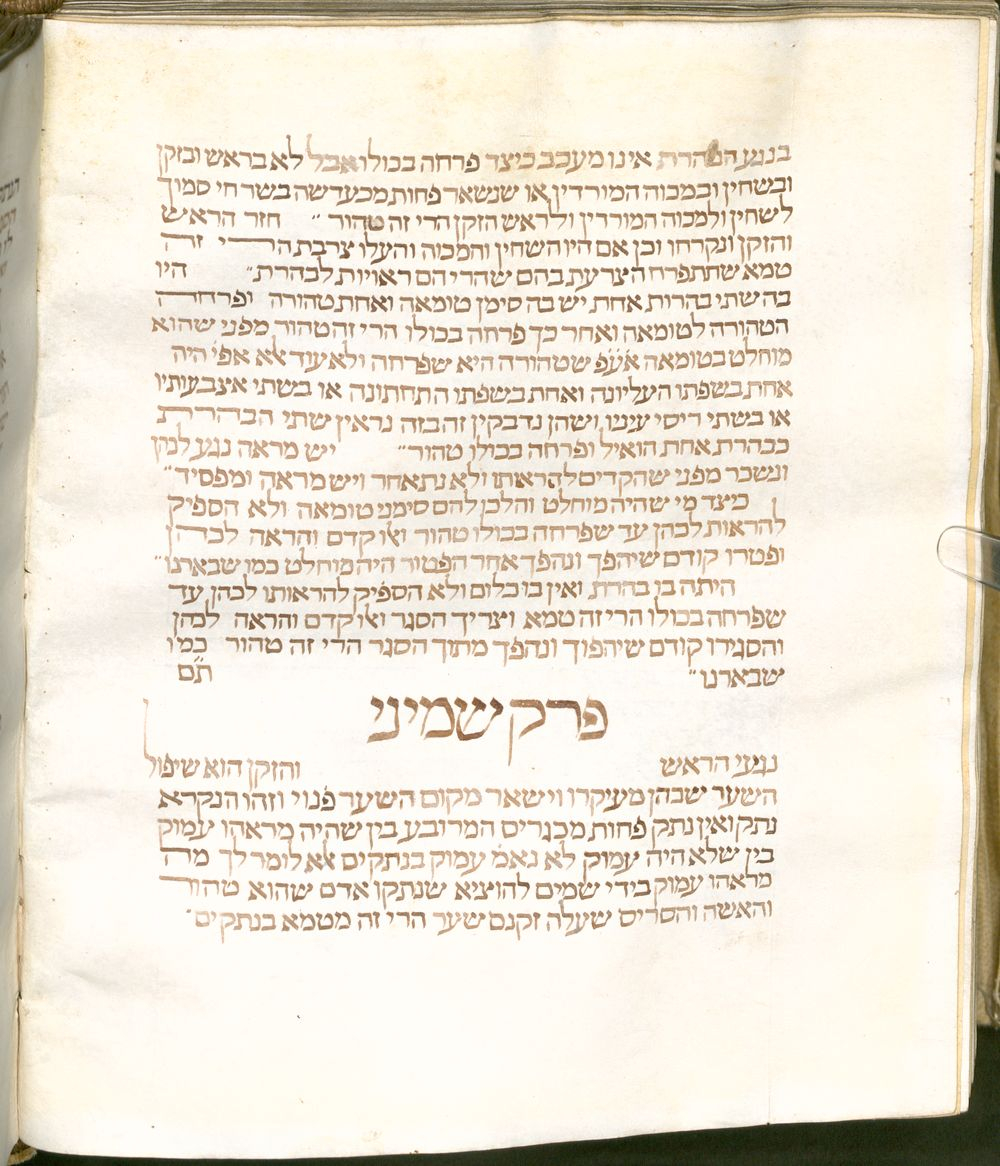 בנגע הבהרת אינו מעכב כיצד פרחה בכולו אבל לא בראש ובזקן
ובשחין ובמכוה המורדין או שנשאר פחות מכעדשה בשר חי סמוך
לשחין ולמכוה המורדין ולראש הזקן הרי זה טהור״ חזר הראש
והזקן ונקרחו וכן אם היו השחין והמכוה והעלו צרבת הרי זה
טמא שתתפרח הצרעת בהם שהרי הם ראויות לבהרת״ היו
בה שתי בהרות אחת יש בה סימן טומאה ואחת טהורה ופרחה
הטהורה לטומאה ואחר כך פרחה בכולו הרי זה טהור מפני שהוא
מוחלט בטומאה אעפ שטהורה היא שפרחה ולא עוד אלא אפי היה
אחת בשפתו העליונה ואחת בשפתו התחתונה או בשתי אצבעותיו
או בשתי ריסי עיניו ושהן נדבקין זה בזה נראין שתי הבהרת
כבהרת אחת הואיל ופרחה בכולו טהור״ יש מראה נגע לכהן
ונשכר מפני שהקדים להראותו ולא נתאחר ויש מראה ומפסיד״
כיצד מי שהיה מוחלט והלכו להם סימני טומאה ולא הספיק
להראות לכהן עד שפרחה בכולו טהור ואלו קדם והראה לכהן
ופטרו קודם שיהפך ונהפך אחר הפטור היה מוחלט כמו שבארנו״
היתה בו בהרת ואין בו כלום ולא הספיק להראותו לכהן עד
שפרחה בכולו הרי זה טמא וצריך הסגר ואלו קדם והראה לכהן
והסגירו קודם שיהפוך ונהפך מתוך הסגר הרי זה טהור כמו
שבארנו״ תם
פרק שמיני
נגעי הראש והזקן הוא שיפול
השער שבהן מעיקרו וישאר מקום השער פנוי וזהו הנקרא
נתק ואין נתק פחות מכגריס המרובע בין שהיה מראהו עמוק
בין שלא היה עמוק לא נאמ עמוק בנתקים אלא לומר לך מה
מראהו עמוק בידי שמים להוציא שנתקו אדם שהוא טהור
והאשה והסריס שעלה זקנם שער הרי זה מטמא בנתקים